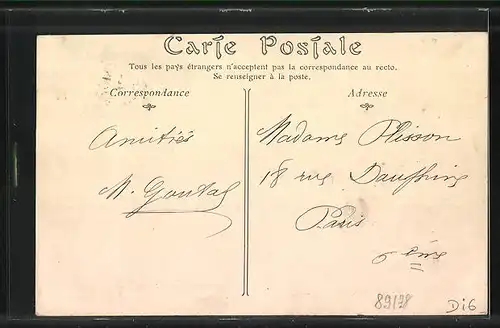 Carte Postale
Tous les pays étrangers n'acceptent pas la correspondance au recto.
Se renseigner à la poste.
Correspondance
Adresse
Amitiés
M. Goutal
Madame Plisson
18 rue Dauphine
Paris
6ème
89/78
Di6